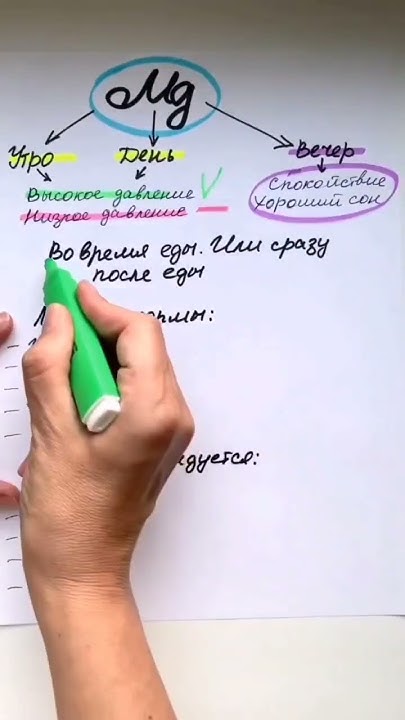 Mg
Утро День Вечер
Высокое давление Спокойствие
Низкое давление Хороший сон
Во время еды. Или сразу
после еды